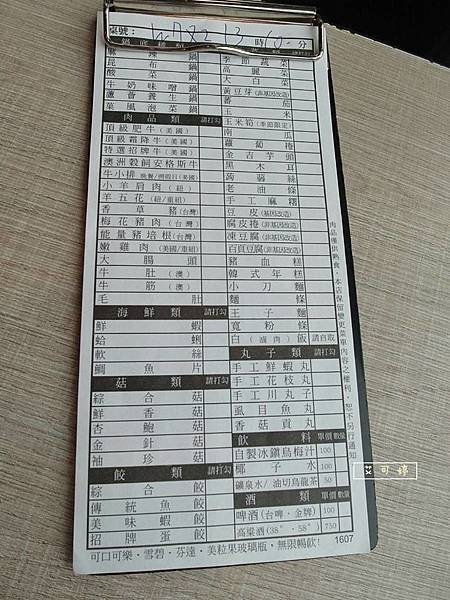 桌號: 時 分
鍋底種類
昆布鍋
酸菜鍋
牛奶味噌鍋
蘆薈養生鍋
葉風泡菜鍋
肉品類 請打勾
頂級肥牛(美國)
頂級霜降牛(美國)
特選招牌牛(美國)
澳洲穀飼安格斯牛
牛小排
小羊肩肉(紐)
羊五花(紐/重組)
香草豬(台灣)
梅花豬肉(台灣)
能量豬培根(台灣)
嫩雞肉(美國/重組)
大腸頭
牛肚(澳)
牛筋(澳)
毛肚
海鮮類 請打勾
鮮蝦
蛤蜊
軟絲
鯛魚片
菇類 請打勾
綜合菇
鮮香菇
杏鮑菇
金針菇
袖珍菇
餃類 請打勾
綜合餃
傳統魚餃
美味蝦餃
招牌蛋餃
季節蔬菜
高麗菜
大白菜
黃豆芽(非基因改造)
番茄
玉米
玉米筍(季節限定)
南瓜
蘿蔔捲
金吉芋頭
黑木耳
蒟蒻絲
老油條
手工麻糬
豆皮(非基因改造)
腐皮捲(非基因改造)
凍豆腐(非基因改造)
百頁豆腐(非基因改造)
豬血糕
韓式年糕
小刀麵
麵條
王子麵
寬粉條
白(滷肉)飯 請自取
丸子類 請打勾
手工鮮蝦丸
手工花枝丸
手工川丸子
虱目魚丸
香菇貢丸
飲料 單價 數量
自製冰鎮烏梅汁 100
椰子水 100
礦泉水/油切烏龍茶 50
酒類 單價 數量
啤酒(台啤·金牌) 100
高粱酒(38°·58°) 750
可口可樂·雪碧·芬達·美粒果玻璃瓶,無限暢飲!
1607
肉品僅供熟食,本店保留變更菜單內容之權利,恕不另行通知
艾可婷